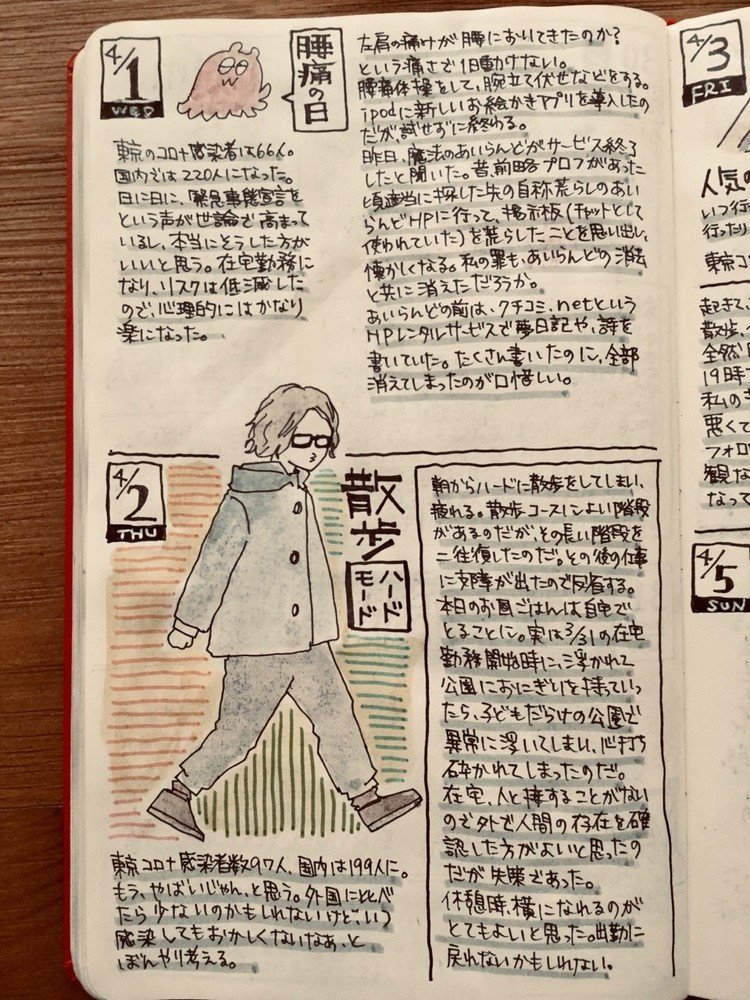 4/1
WED
腰痛の日
東京のコロナ感染者は66人。
国内では220人になった。
日に日に、緊急事態宣言を
という声が世論で高まって
いるし、本当にそうした方が
いいと思う。在宅勤務に
なり、リスクは低減した
ので、心理的にはかなり
楽になった。
左肩の痛みが腰においてきたのか？
という痛さで1日動けない。
腰痛体操をして、腕立て伏せなどをする。
ipodに新しいお絵かきアプリを導入したの
だが、試せずに終わる。
昨日、魔法のあいらんどがサービス終了
したと聞いた。昔、前略プロフがあった
頃適当に探した先の自称荒らしのあい
らんどHPに行って、掲示板(チャットとして
使われていた)を荒らしたことを思い出し、
懐かしくなる。私の罪も、あいらんどの消法
と共に消えただろうか。
あいらんどの前は、クチコミ.netという
HPレンタルサービスで夢日記や、詩を
書いていた。たくさん書いたのに、全部
消えてしまったのが口惜しい。
4/2
THU
散歩
ハード
モード
東京コロナ感染者数97人、国内は199人に。
もう、やばいじゃん、と思う。外国に比べ
たら少ないのかもしれないけど、いつ
感染してもおかしくないなあ、と
ぼんやり考える。
朝からハードに散歩をしてしまい、
疲れる。散歩コースによい階段
があるのだが、その長い階段を
二往復したのだ。その後の仕事
に支障が出たので反省する。
本日のお昼ごはんは自宅で
とることに。実は3/31の在宅
勤務開始時に、浮かれて
公園におにぎりを持っていっ
たら、子どもだらけの公園で
異常に浮いてしまい、心打ち
砕かれてしまったのだ。
在宅、人と接することがない
ので外で人間の存在を確
認した方がよいと思ったの
だが失策であった。
休憩時、横になれるのが
とてもよいと思った。出勤に
戻れないかもしれない。
4/3
FRI
人気の
いつ行
行ったり
東京コ
起きて、
散歩、
全然
19時
私の
悪くて
フォロ
観な
なって
4/5
SUN